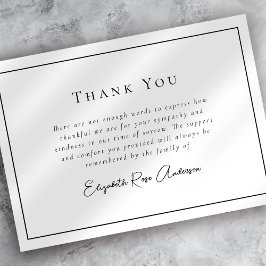 THANK YOU
There are not enough words to express how
thankful we are for your sympathy and
kindness in our time of sorrow. The support
and comfort you provided will always be
remembered by the family of
Elizabeth Rose Anderson